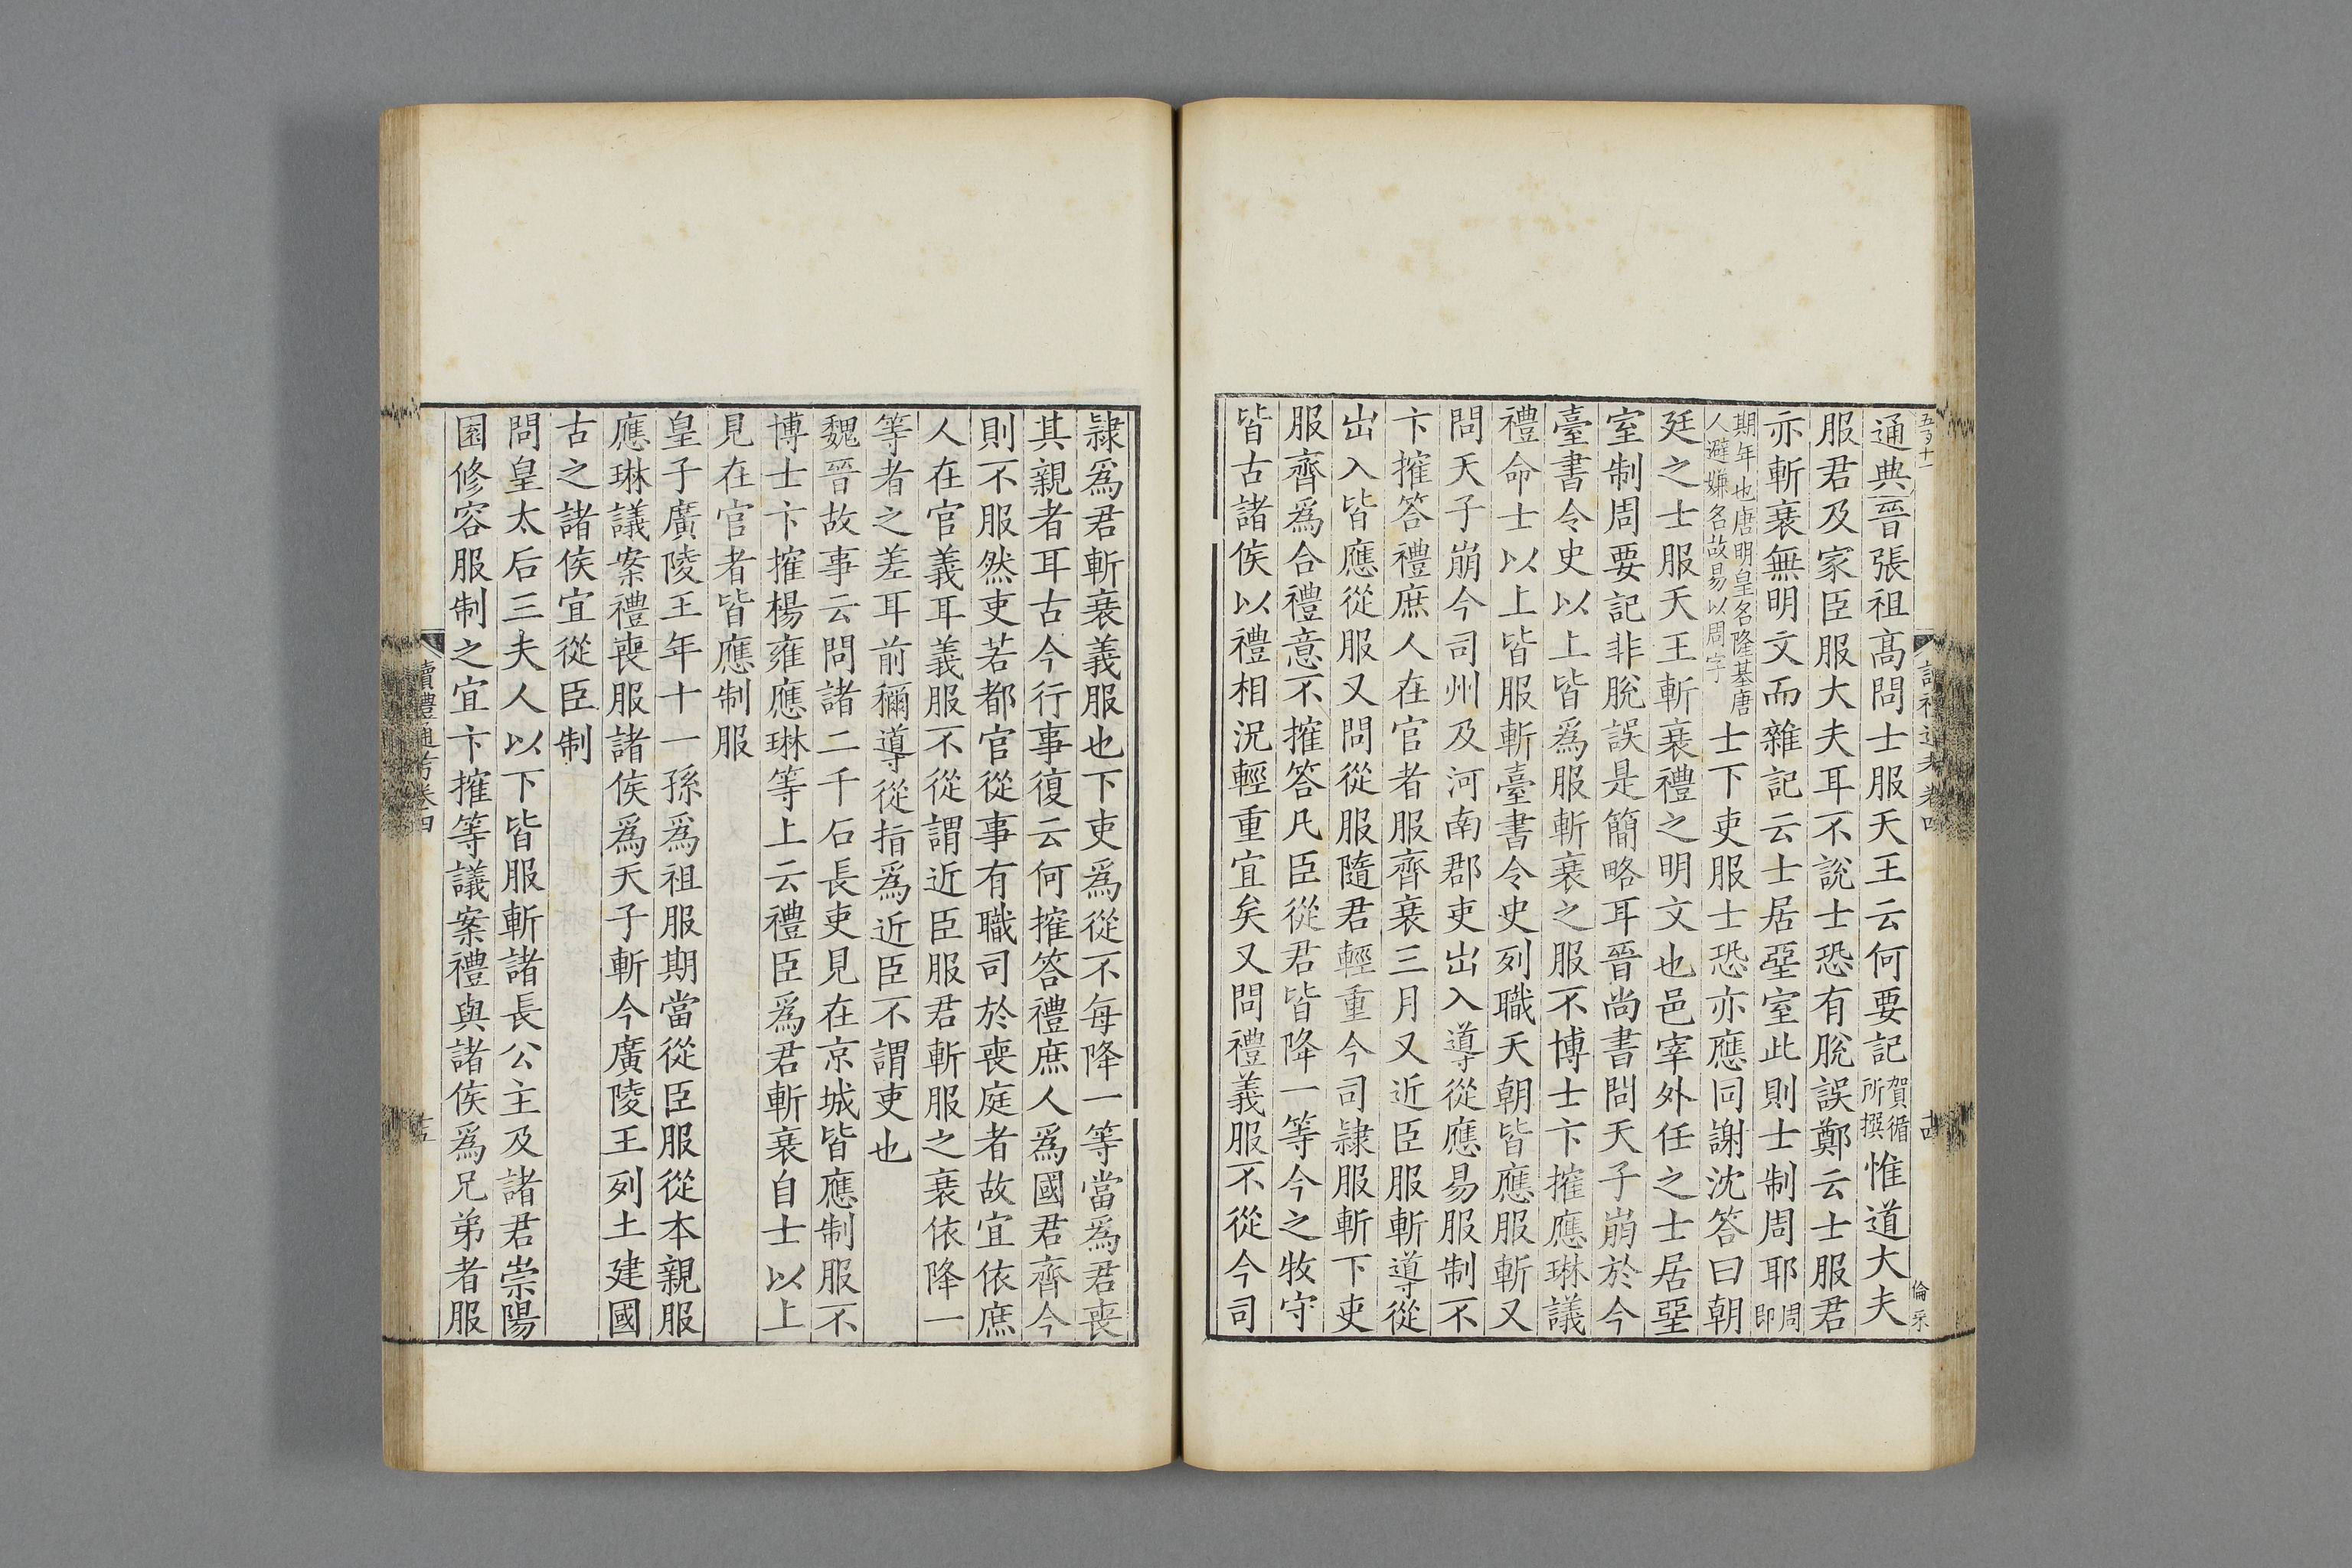 通典晉張祖髙問士服天王云何要記賀循所撰惟道大夫
服君及家臣服大夫耳不説士恐有脫誤鄭云士服君
亦斬衰無明文而雜記云士居堊室此則士制周耶周即
期年也唐明皇名隆基唐人避嫌名故易以周字士下吏服士恐亦應同謝沈答曰朝
廷之士服天王斬衰禮之明文也邑宰外任之士居堊
室制周要記非脫誤是簡略耳晉尚書問天子崩於今
臺書令史以上皆爲服斬衰之服不博士卞搉應琳議
禮命士以上皆服斬臺書令史列職天朝皆應服斬又
問天子崩今司州及河南郡吏出入導從應易服制不
卞搉答禮庶人在官者服齊衰三月又近臣服斬導從
出入皆應從服又問從服隨君輕重今司隷服斬下吏
服齊爲合禮意不搉答凡臣從君皆降一等今之牧守
皆古諸侯以禮相況輕重宜矣又問禮義服不從今司
隷爲君斬衰義服也下吏爲從不每降一等當爲君喪
其親者耳古今行事復云何搉答禮庶人爲國君齊今
則不服然吏若都官從事有職司於喪庭者故宜依庶
人在官義耳義服不從謂近臣服君斬服之衰依降一
等者之差耳前稱導從指爲近臣不謂吏也
魏晉故事云問諸二千石長吏見在京城皆應制服不
博士卞搉楊雍應琳等上云禮臣爲君斬衰自士以上
見在官者皆應制服
皇子廣陵王年十一孫爲祖服期當從臣服從本親服
應琳議案禮喪服諸侯爲天子斬今廣陵王列土建國
古之諸侯宜從臣制
問皇太后三夫人以下皆服斬諸長公主及諸君崇陽
園修容服制之宜卞搉等議案禮與諸侯爲兄弟者服
讀禮通考卷四
十五